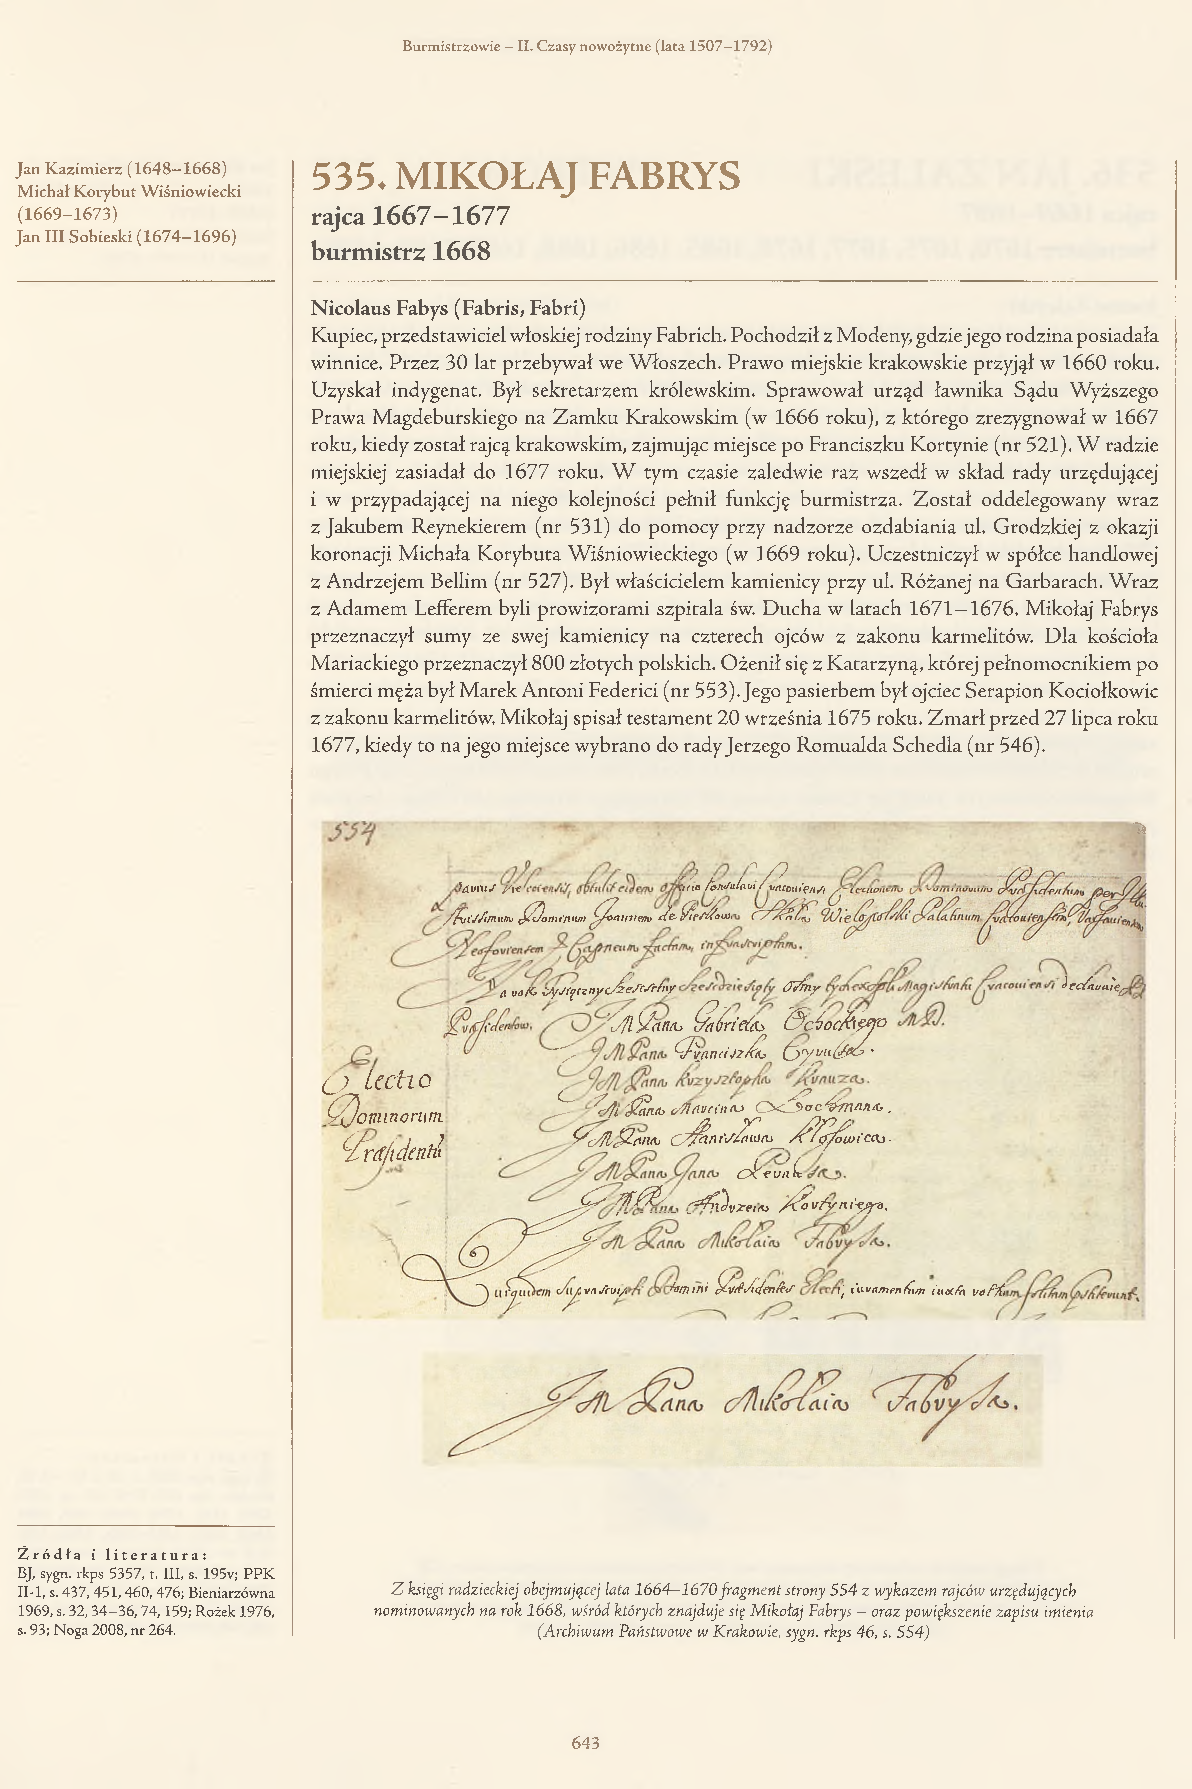 Burmistrzowie – II. Czasy nowożytne (lata 1507–1792)
Jan Kazimierz (1648–1668)
Michał Korybut Wiśniowiecki
(1669–1673)
Jan III Sobieski (1674–1696)
535. MIKOŁAJ FABRYS
rajca 1667–1677
burmistrz 1668
Nicolaus Fabys (Fabris, Fabri)
Kupiec, przedstawiciel włoskiej rodziny Fabrich. Pochodził z Modeny, gdzie jego rodzina posiadała
winnice. Przez 30 lat przebywał we Włoszech. Prawo miejskie krakowskie przyjął w 1660 roku.
Uzyskał indygenat. Był sekretarzem królewskim. Sprawował urząd ławnika Sądu Wyższego
Prawa Magdeburskiego na Zamku Krakowskim (w 1666 roku), z którego zrezygnował w 1667
roku, kiedy został rajcą krakowskim, zajmując miejsce po Franciszku Kortynie (nr 521). W radzie
miejskiej zasiadał do 1677 roku. W tym czasie zaledwie raz wszedł w skład rady urzędującej
i w przypadającej na niego kolejności pełnił funkcję burmistrza. Został oddelegowany wraz
z Jakubem Reynekierem (nr 531) do pomocy przy nadzorze ozdabiania ul. Grodzkiej z okazji
koronacji Michała Korybuta Wiśniowieckiego (w 1669 roku). Uczestniczył w spółce handlowej
z Andrzejem Bellim (nr 527). Był właścicielem kamienicy przy ul. Różanej na Garbarach. Wraz
z Adamem Lefferem byli prowizorami szpitala św. Ducha w latach 1671–1676. Mikołaj Fabrys
przeznaczył sumy ze swej kamienicy na czterech ojców z zakonu karmelitów. Dla kościoła
Mariackiego przeznaczył 800 złotych polskich. Ożenił się z Katarzyną, której pełnomocnikiem po
śmierci męża był Marek Antoni Federici (nr 553). Jego pasierbem był ojciec Serapion Kociołkowic
z zakonu karmelitów. Mikołaj spisał testament 20 września 1675 roku. Zmarł przed 27 lipca roku
1677, kiedy to na jego miejsce wybrano do rady Jerzego Romualda Schedla (nr 546).
554
Electio
Dominorum
JM Pana Gabriela Ochockiego MD.
JM Pana Franciszka
JM Pana Krzysztopha Krauza.
JM Pana Marcina
JM Pana Stanisława
JM Pana Jana
JM Pana Andrzeia Kortyniego.
JM Pana Mikołaia Fabrysa.
JM Pana Mikołaia Fabrysa.
Źródła i literatura:
BJ, sygn. rkps 5357, t. III, s. 195v; PPK
II-1, s. 437, 451, 460, 476; Bieniarzówna
1969, s. 32, 34–36, 74, 159; Rożek 1976,
s. 93; Noga 2008, nr 264.
Z księgi radzieckiej obejmującej lata 1664–1670 fragment strony 554 z wykazem rajców urzędujących
nominowanych na rok 1668, wśród których znajduje się Mikołaj Fabrys – oraz powiększenie zapisu imienia
(Archiwum Państwowe w Krakowie, sygn. rkps 46, s. 554)
643